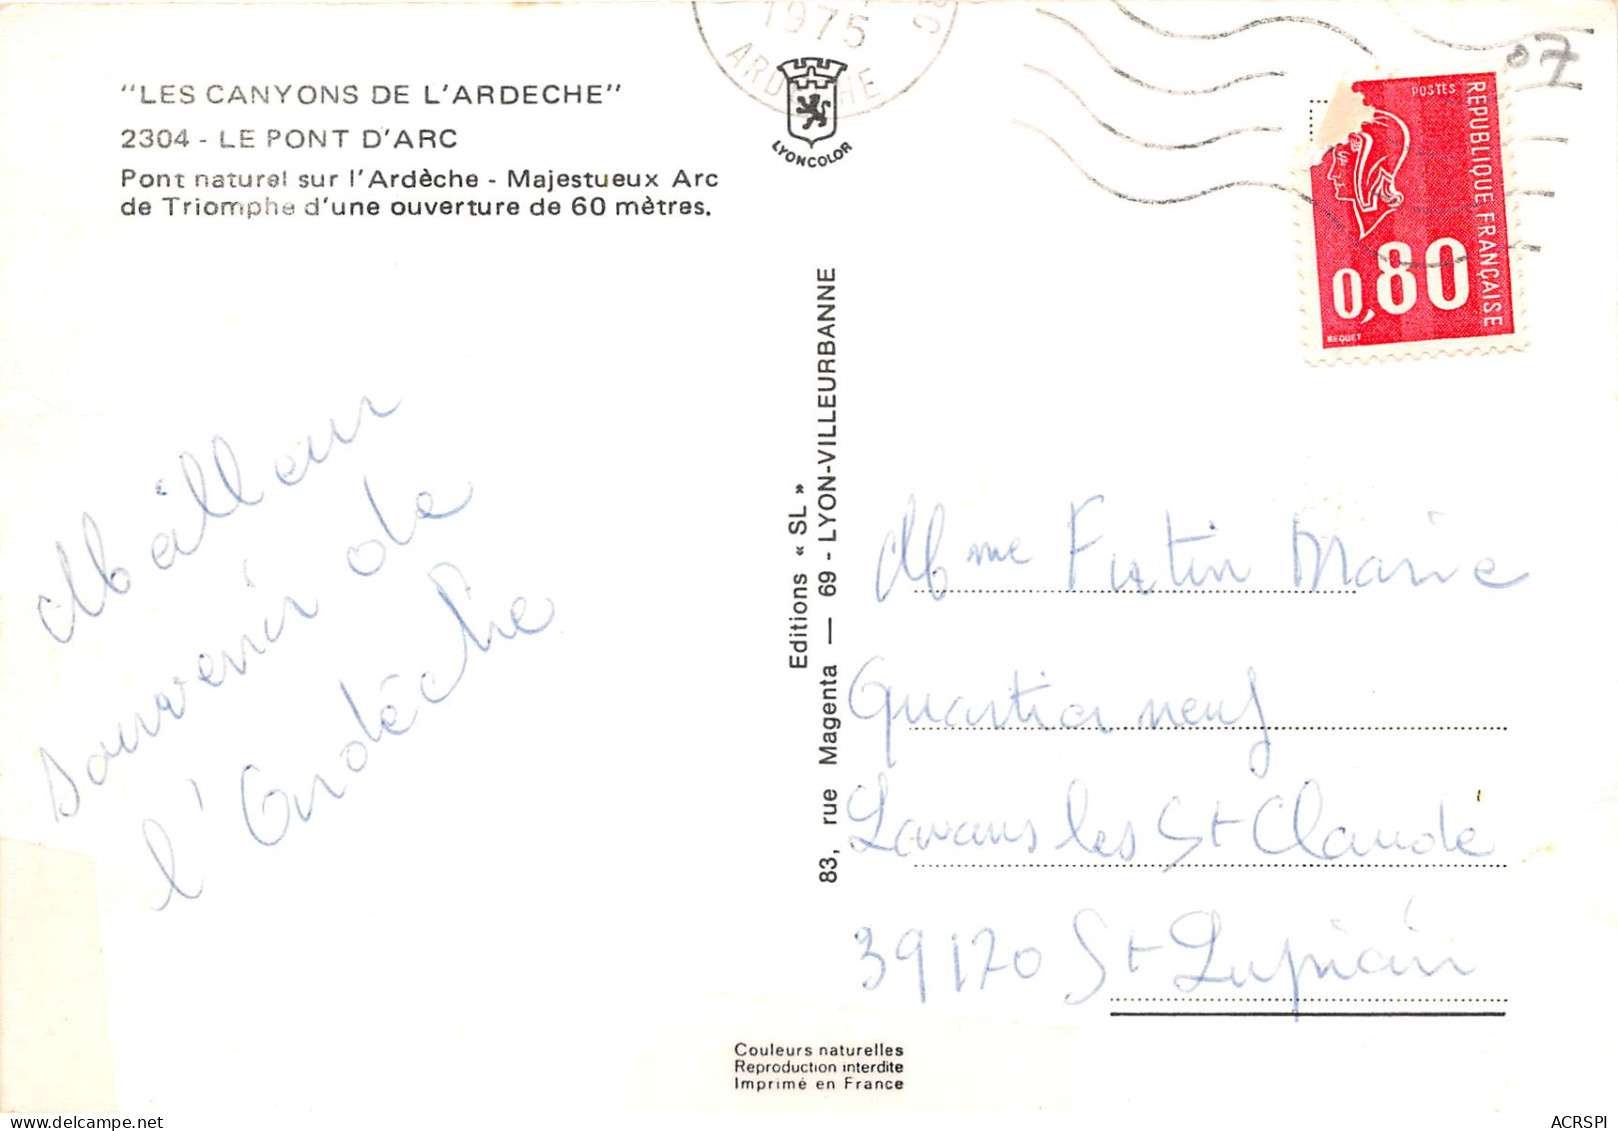 "LES CANYONS DE L'ARDECHE"
2304 - LE PONT D'ARC
Pont naturel sur l'Ardèche - Majestueux Arc
de Triomphe d'une ouverture de 60 mètres.
Meilleur
souvenir de
l'Ardèche
1975
ARDECHE
LYONCOLOR
Editions « SL »
83, rue Magenta — 69 - LYON-VILLEURBANNE
07
POSTES
REPUBLIQUE FRANÇAISE
0,80
BEQUET
Mme Marie
Quartier neuf
Lavans les St Claude
39170 St Lupicin
Couleurs naturelles
Reproduction interdite
Imprimé en France
delcampe.net
ACRSPI